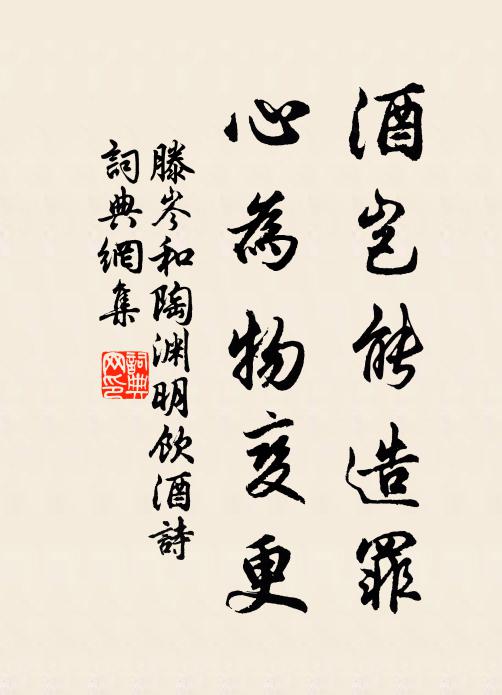 酒豈能造罪
心為物变更
滕岑和陶渊明飲酒詩
詞典網集
詞典網印